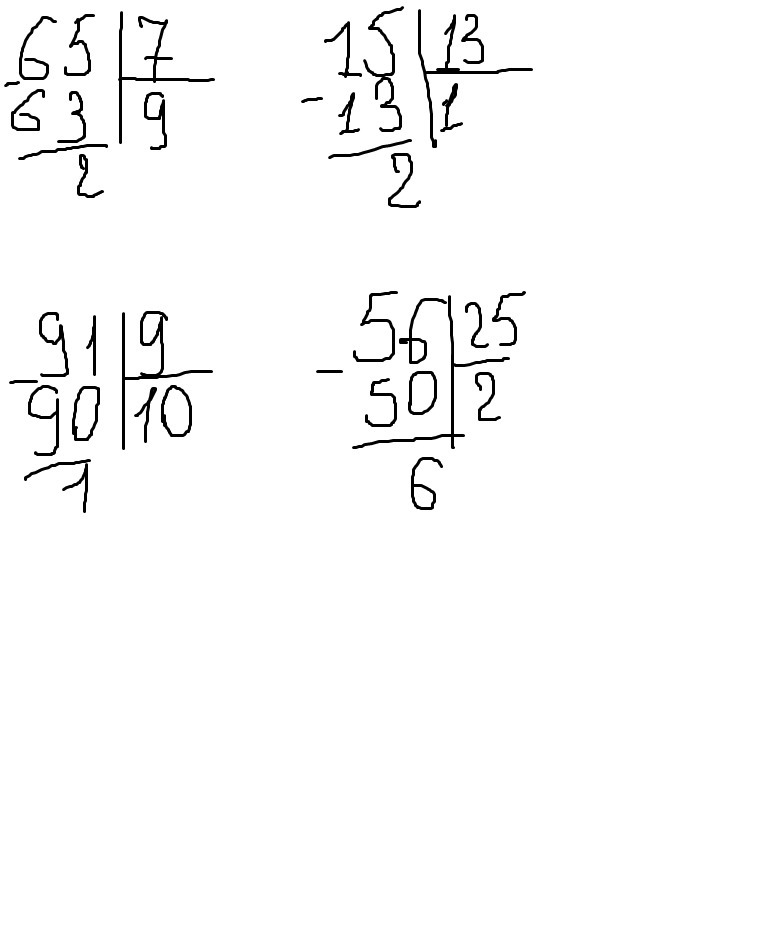 65 7
- 63 9
2
15 13
- 13 1
2
91 9
- 90 10
1
56 25
- 50 2
6